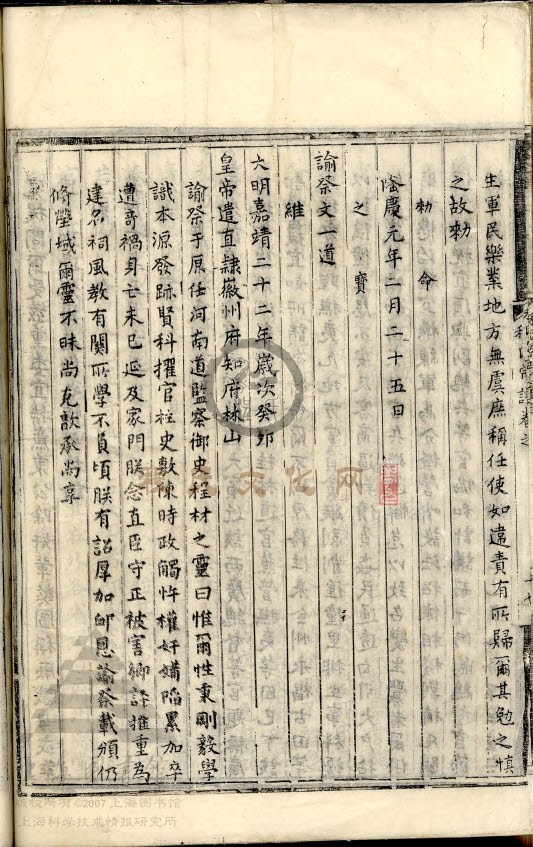 生軍民樂業地方無虞庶稱任使如違責有所歸爾其勉之慎
之故勅
勅命
隆慶元年二月二十五日
之寶
諭祭文一道
維
大明嘉靖二十二年歲次癸卯
皇帝遣直隸徽州府知府林山
諭祭于原任河南道監察御史程材之靈曰惟爾性秉剛毅學
識本源發跡賢科擢官柱史敷陳時政觸忤權奸媾陷累加卒
遭奇禍身亡未已延及家門朕念直臣守正被害鄉評推重為
建名祠風教有關所學不負頃朕有詔厚加卹恩諭祭載頒仍
脩塋域爾靈不昧尚克歆承尚享
版权所有©2007 上海图书馆
上海科学技术情报研究所